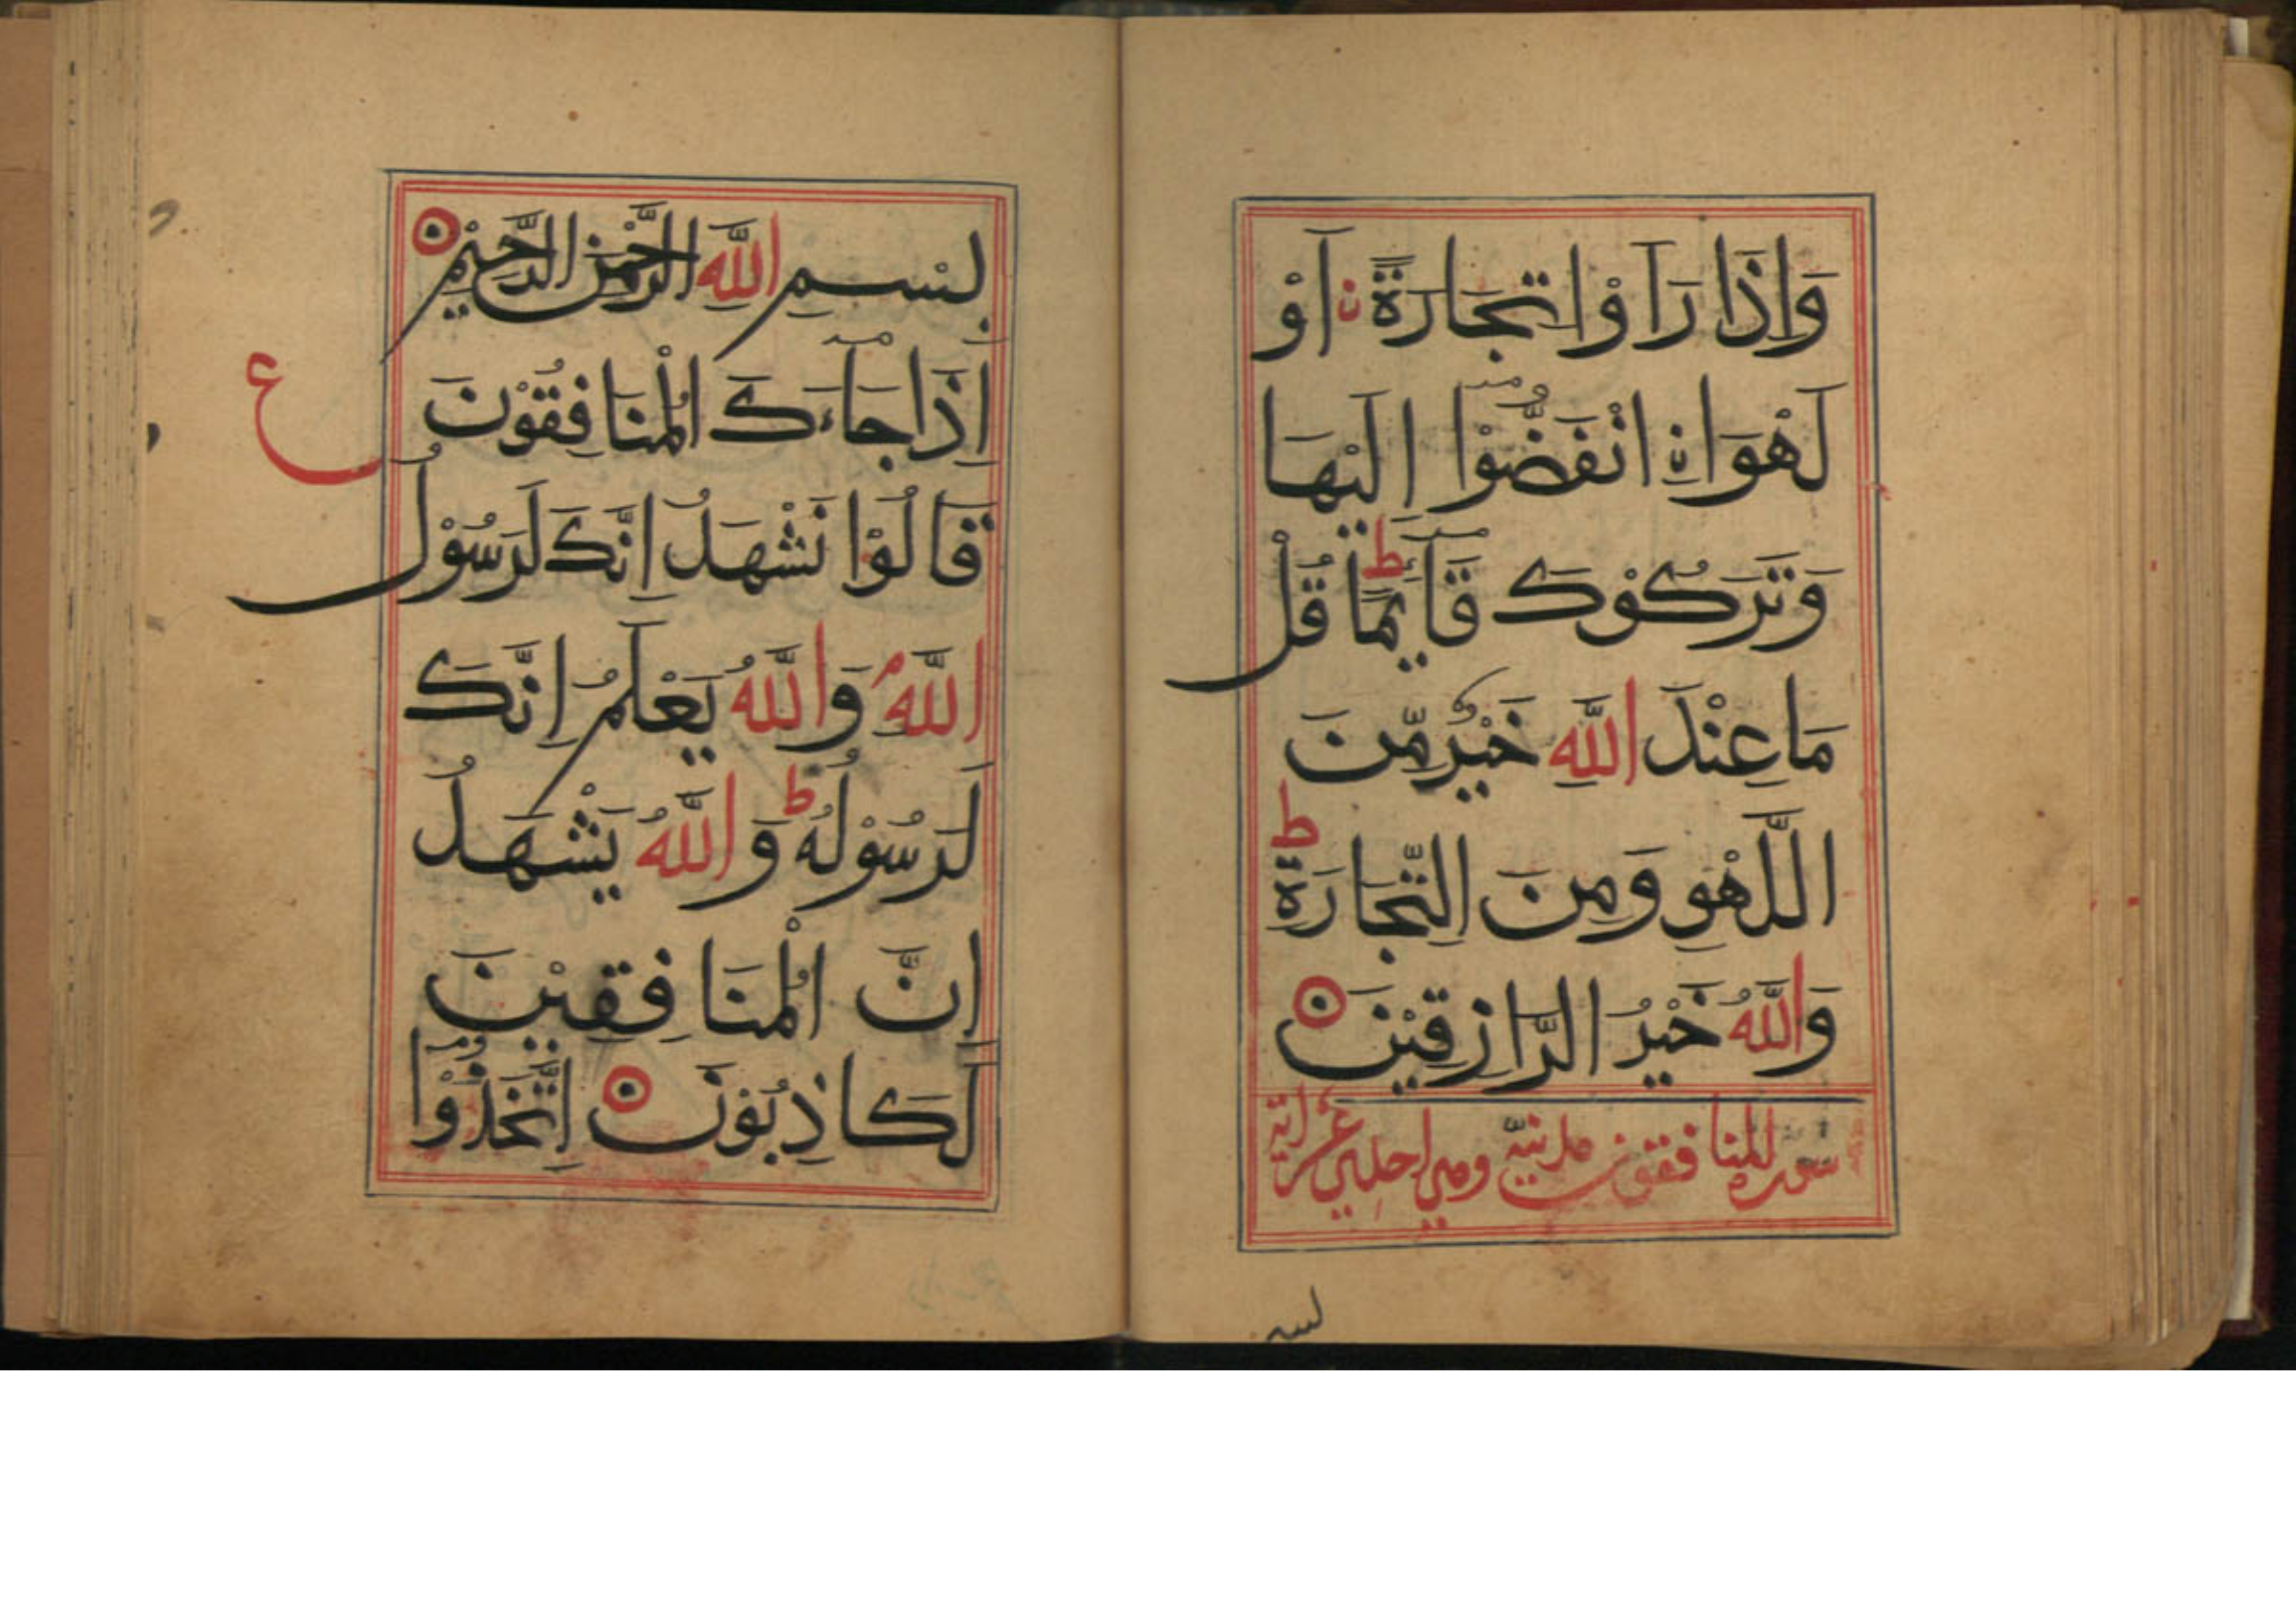 وَاِذَا رَاَوْا تِجَارَةً ن اَوْ
لَهْوَا نِ انْفَضُّوْا اِلَيْهَا
وَتَرَكُوْكَ قَآئِمًا ط قُلْ
مَا عِنْدَ اللّٰهِ خَيْرٌ مِّنَ
اللَّهْوِ وَمِنَ التِّجَارَةِ ط
وَاللّٰهُ خَيْرُ الرَّازِقِيْنَ
سورة المنافقون مدنية وهي احدي عشر اية
لبسم
بِسْمِ اللّٰهِ الرَّحْمٰنِ الرَّحِيْمِ
اِذَا جَآءَكَ الْمُنَافِقُوْنَ
ع
قَالُوْا نَشْهَدُ اِنَّكَ لَرَسُوْلُ
اللّٰهِ م وَاللّٰهُ يَعْلَمُ اِنَّكَ
لَرَسُوْلُهُ ط وَاللّٰهُ يَشْهَدُ
اِنَّ الْمُنَافِقِيْنَ
لَكَاذِبُوْنَ اِتَّخَذُوْٓا